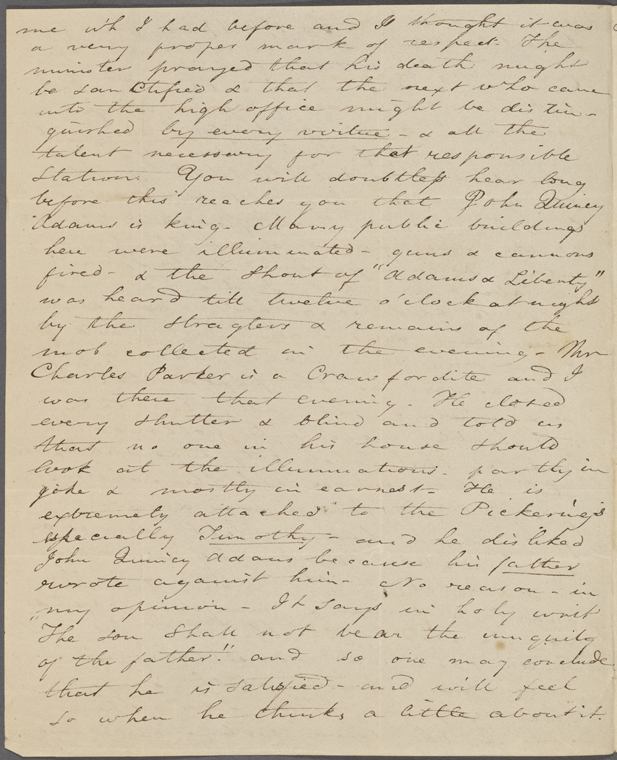 me wh I had before and I thought it was
a very proper mark of respect. The
minister prayed that his death might
be sanctified & that the next who came
into the high office might be distin-
guished by every virtue - & all the
talent necessary for that responsible
Station. You will doubtless hear long
before this reaches you that John Quincy
Adams is king - Many public buildings
here were illuminated - guns & cannons
fired - & the shout of "Adams & Liberty"
was heard till twelve o'clock at night
by the straglers & remains of the
mob collected in the evening - Mr
Charles Parker is a Crawfordite and I
was there that evening. He closed
every shutter & blind and told us
that no one in his house should
look at the illuminations. partly in
joke & mostly in earnest - He is
extremely attached to the Pickerings
especially Timothy - and he disliked
John Quincy Adams because his father
wrote against him - No reason - in
my opinion - It says in holy writ
"The son shall not bear the iniquity
of the father." and so one may conclude
that he is satisfied - and will feel
so when he thinks a little about it.